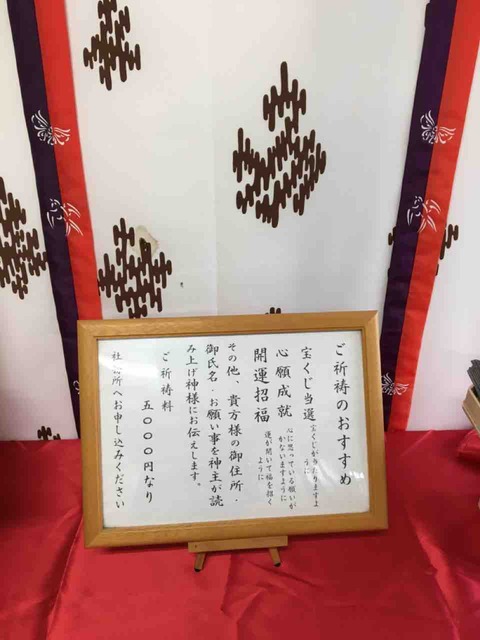 ご祈祷のおすすめ
宝くじ当選 宝くじが当たりますように
心願成就 心に思っている願いがかないますように
開運招福 運が開いて福を招くように
その他、貴方様の御住所・
御氏名・お願い事を神主が読
み上げ神様にお伝えします。
ご祈祷料
五〇〇〇円なり
社務所へお申し込みください